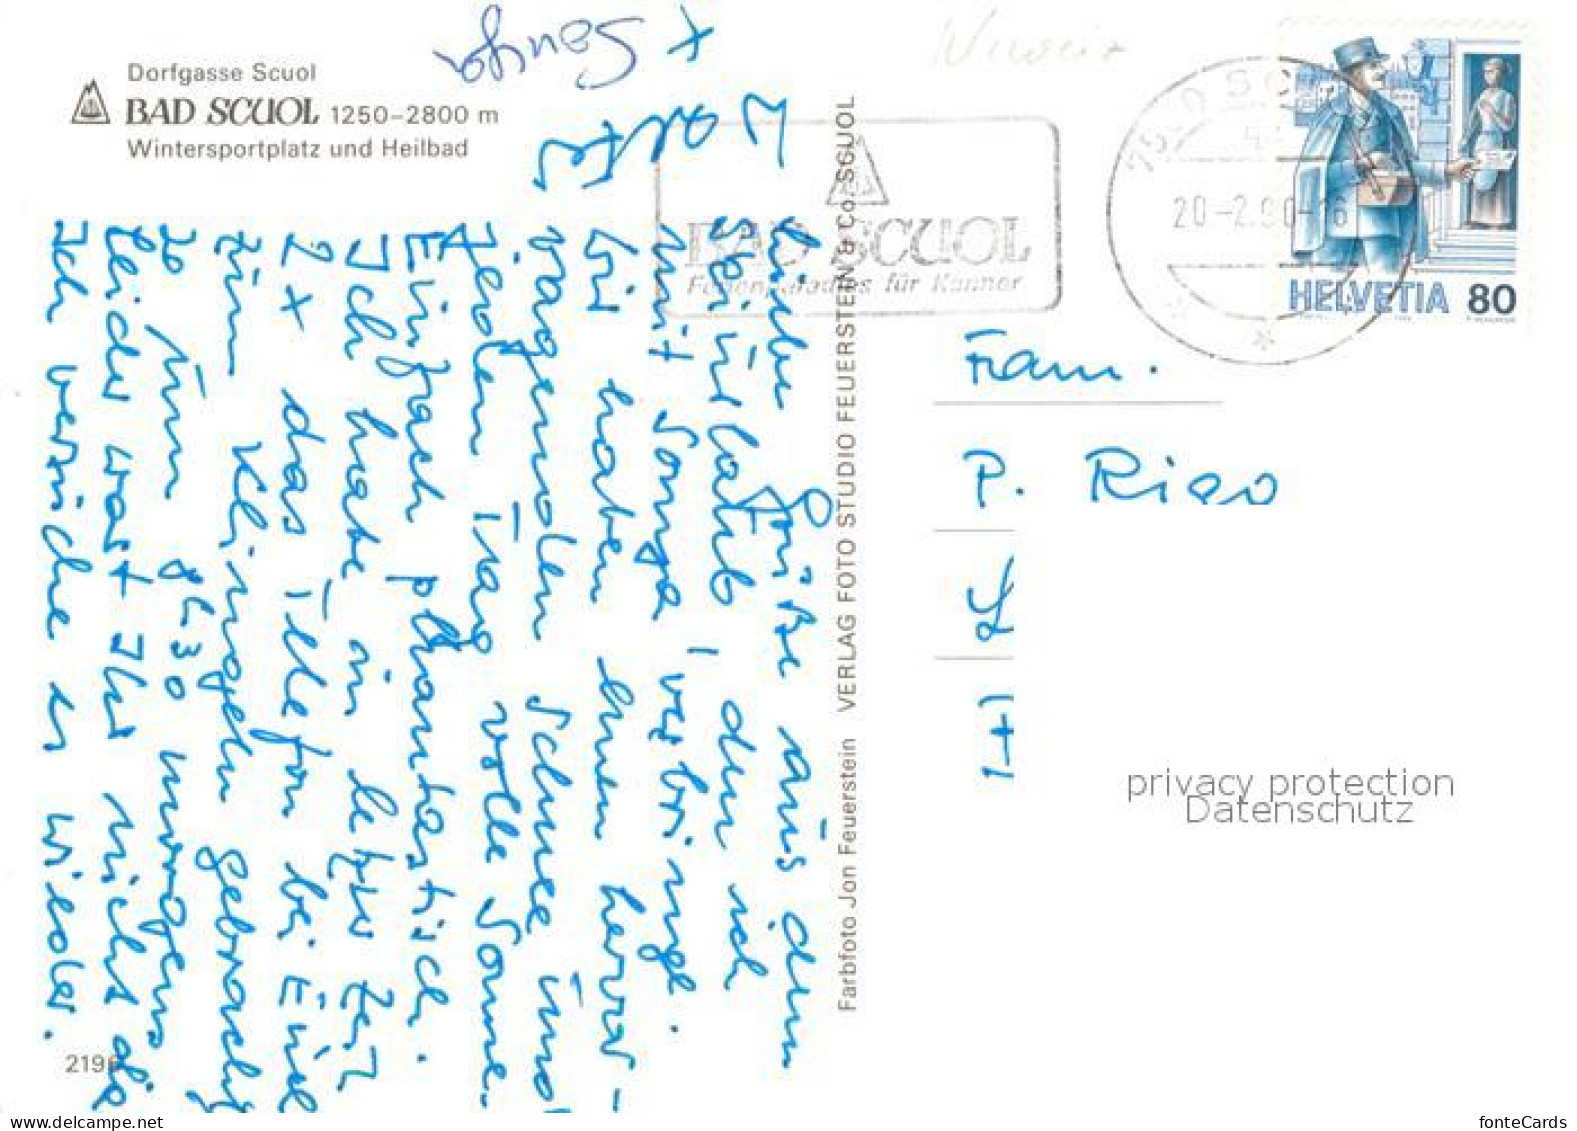 Dorfgasse Scuol
BAD SCUOL 1250–2800 m
Wintersportplatz und Heilbad
Liebe Grüße aus dem
Skiurlaub, den ich
mit Sonya verbringe.
Wir haben einen hervor-
ragenden Schnee und
jeden Tag volle Sonne.
Einfach phantastisch.
Ich habe in letzter Zeit
2x das Telefon bei Euch
zum Klingeln gebracht
so um 8h30 morgens
leider wart Ihr nicht da
Ich versuche es wieder.
+
2196
Farbfoto Jon Feuerstein VERLAG FOTO STUDIO FEUERSTEIN & Co. SCUOL
BAD SCUOL
Ferienparadies für Kenner
20-2.90-16
HELVETIA 80
Fam.
P. Riso
privacy protection
Datenschutz
www.delcampe.net
fonteCards